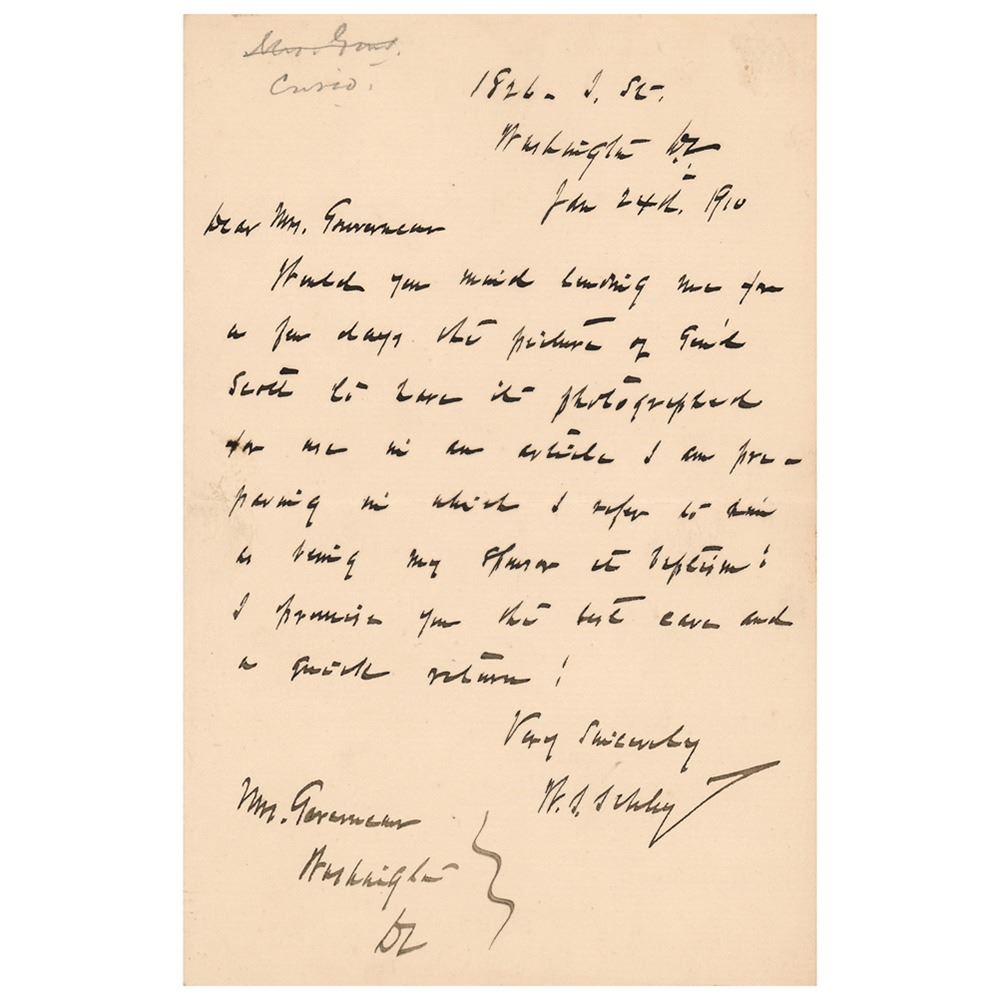 Curio.
1826 - I. St.
Washington DC
Jan 24th, 1910
Dear Mrs. Gouverneur
Would you mind lending me for
a few days the picture of Gen'l
Scott to have it photographed
for use in an article I am pre-
paring in which I refer to him
as being my sponsor at baptism!
I promise you the best care and
a quick return!
Very Sincerely
W. S. Schley
Mrs. Gouverneur
Washington
DC